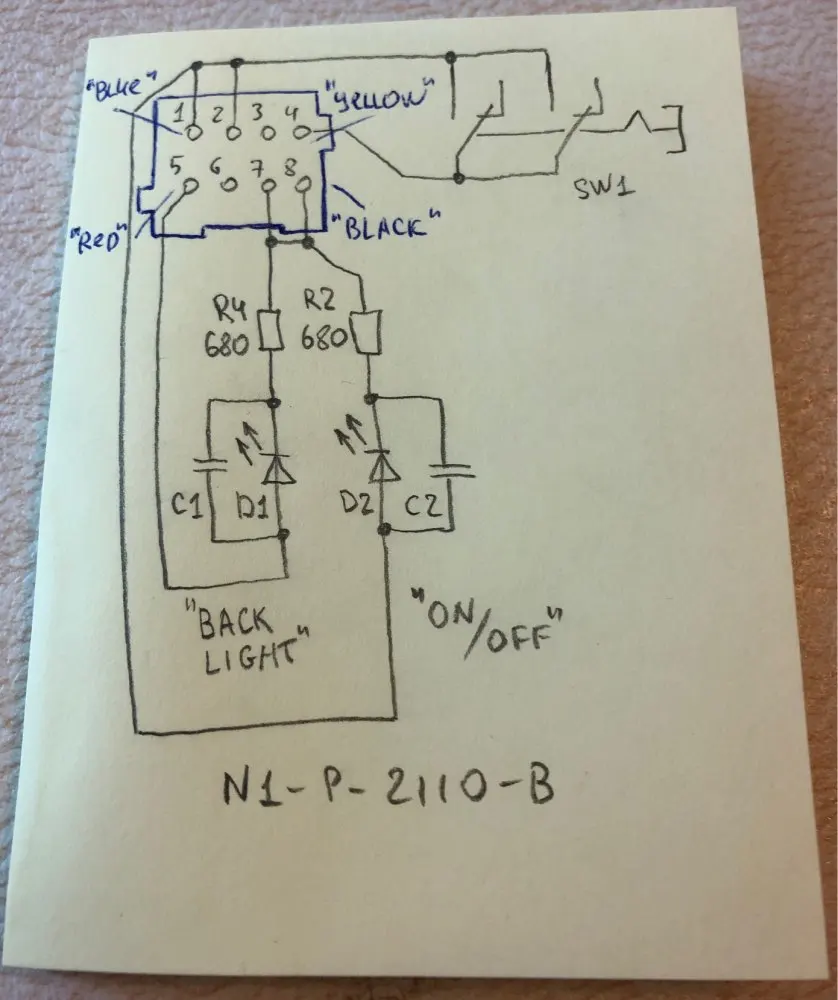 "BLUE" "YELLOW"
1 2 3 4
5 6 7 8
"RED" "BLACK"
SW1
R4
680
R2
680
C1 D1 D2 C2
"BACK
LIGHT"
"ON/OFF"
N1-P-2110-B